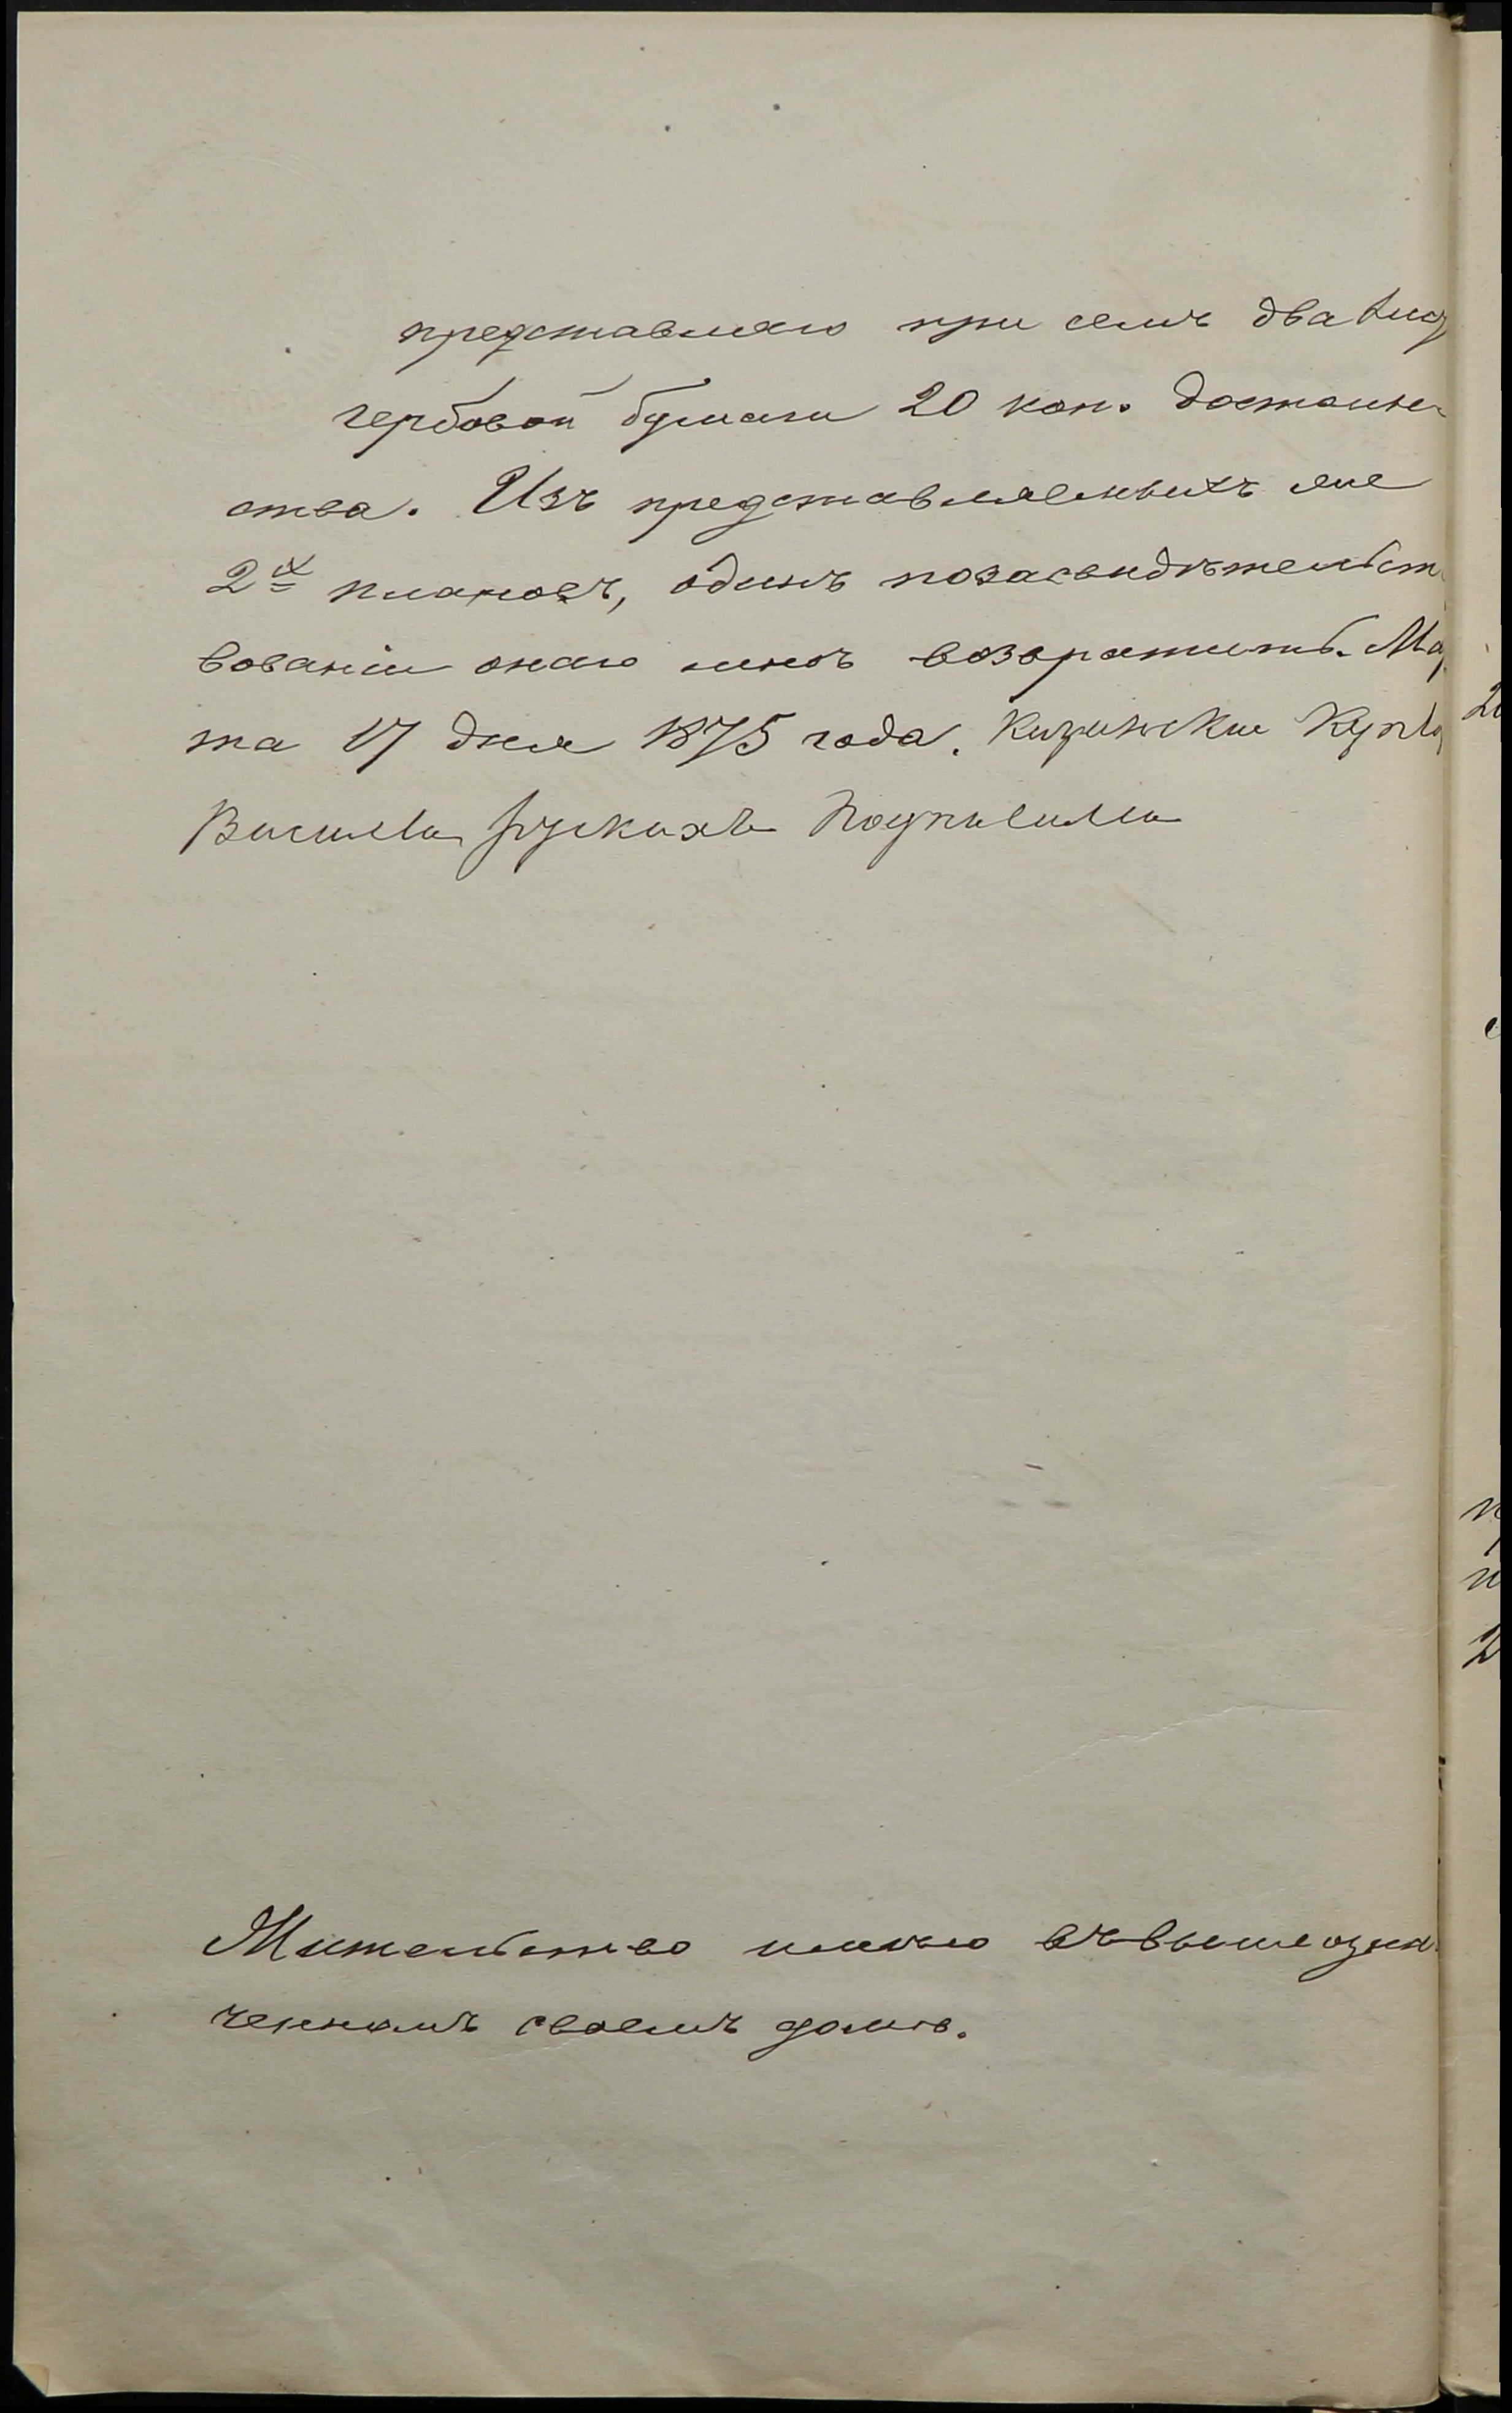 представляю при семъ два лис
гербовой бумаги 20 коп. достоин-
ства. Изъ представляемыхъ мне
2х плановъ, одинъ позасвидѣтельст
вованіи онаго мнѣ возвратить. Мар
та 17 дня 1875 года. Киринскии Купец
Василеи Рускихъ
Жительство имѣю въ вышеозна
ченномъ своемъ домѣ.